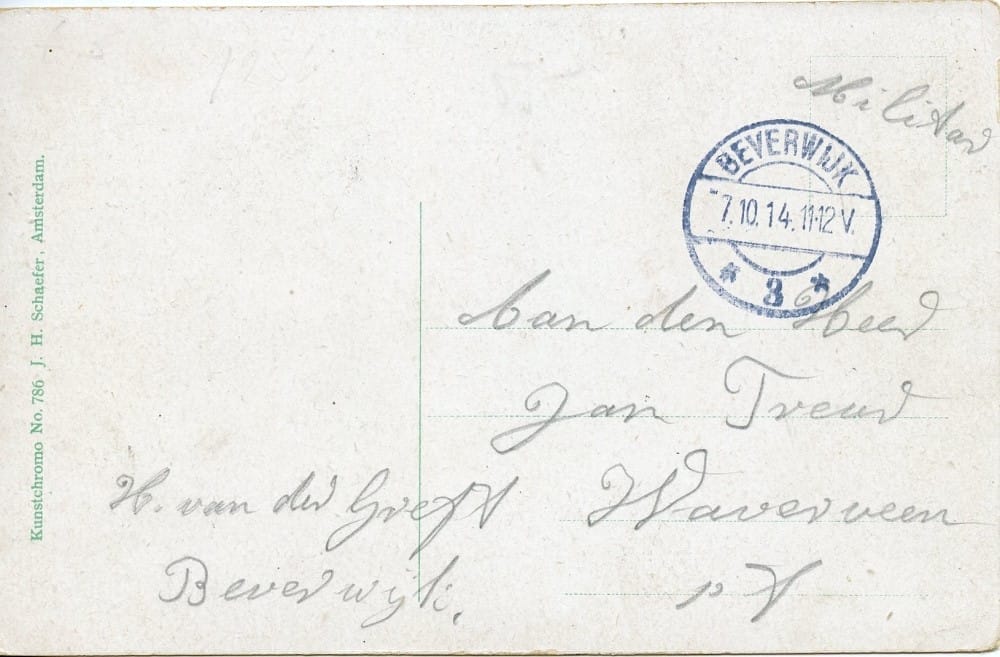 Militar
BEVERWIJK
7.10.14.11-12 V.
* 3 *
Kunstchromo No. 786 J. H. Schaefer, Amsterdam.
Aan den Heer
Jan Treur
Waverveen
H. van der Greft
Beverwijk.